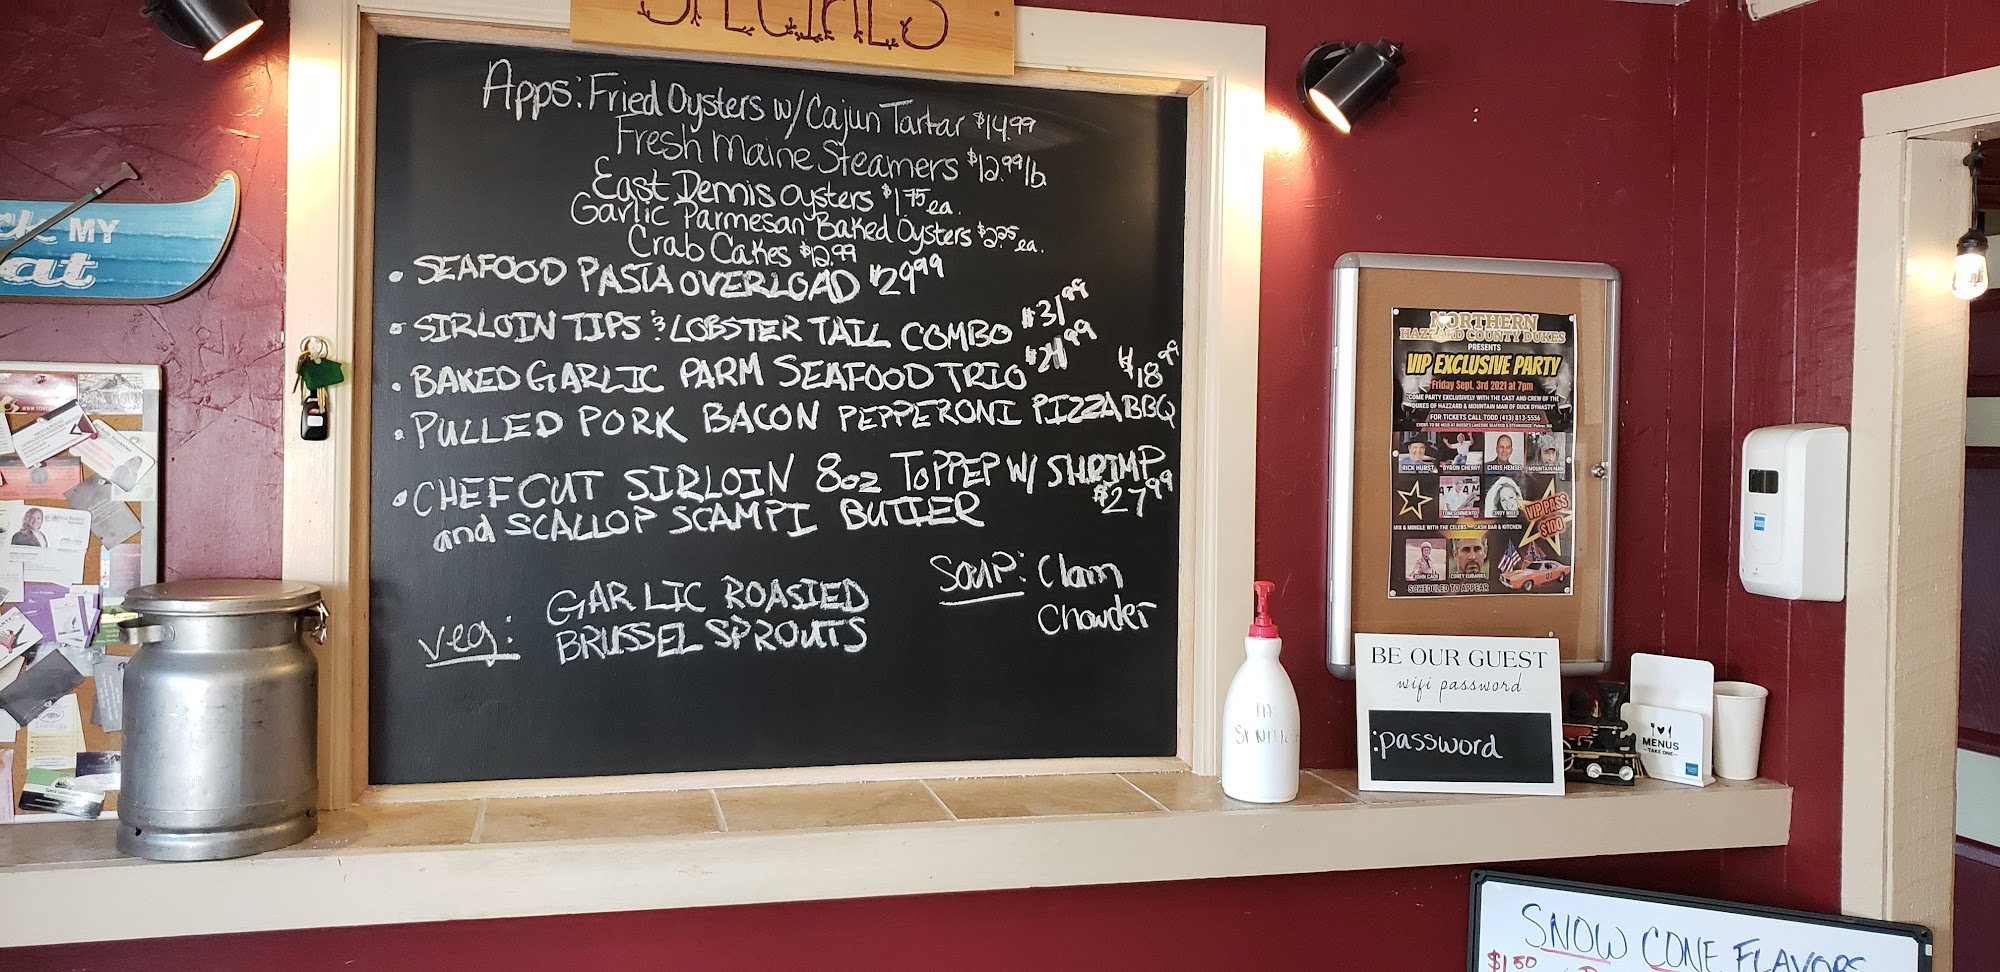 SPECIALS
Apps: Fried Oysters w/ Cajun Tartar $14.99
Fresh Maine Steamers $12.99/lb
East Dennis oysters $1.75 ea.
Garlic Parmesan Baked Oysters $2.25 ea.
Crab Cakes $12.99
• SEAFOOD PASTA OVERLOAD $29.99
• SIRLOIN TIPS & LOBSTER TAIL COMBO $31.99
• BAKED GARLIC PARM SEAFOOD TRIO $24.99
• PULLED PORK BACON PEPPERONI PIZZA BBQ $18.99
• CHEF CUT SIRLOIN 8oz TOPPEP W/ SHRIMP
and SCALLOP SCAMPI BUTTER $27.99
veg: GARLIC ROASTED
BRUSSEL SPROUTS
Soup: Clam
Chowder
MY
NORTHERN
HAZZARD COUNTY DUKES
PRESENTS
VIP EXCLUSIVE PARTY
Friday Sept. 3rd 2021 at 7pm
COME PARTY EXCLUSIVELY WITH THE CAST AND CREW OF THE
DUKES OF HAZZARD & MOUNTAIN MAN OF DUCK DYNASTY
FOR TICKETS CALL TODD (413) 813-5556
RICK HURST
BYRON CHERRY
CHRIS HENSEL
MOUNTAIN MAN
TOM SARMENTO
CINDY
VIP PASS
$100
MIX & MINGLE WITH THE CELEBS CASH BAR & KITCHEN
COREY EUBANKS
SCHEDULED TO APPEAR
BE OUR GUEST
wifi password
:password
MENUS
TAKE ONE
SNOW CONE FLAVORS
$1.50